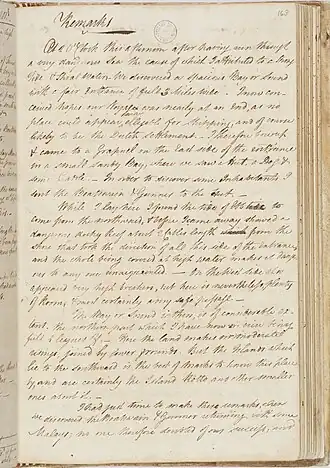 163
Remarks
At 2 O'Clock this afternoon after having run through
a very dang.s Sea the cause of which I attributed to a long
tide & Strait Motion We discovered a Spacious Bay or Sound
with a fair entrance of full 3 Miles wide. I now con-
ceived hopes our Voyage was nearly at an end, as no
place could appear more eligible for Shipping, and of course
likely to be the Dutch Settlement. I Therefore bore up
& came to a Grapnel on the East side of the entrance
in a small Sandy Bay, where we saw a Hut a Dog &
some Cattle. In order to discover some Inhabitants I
sent the Boatswain & Gunner to the Hut.
While I lay here I found the tide of Ebb
come from the northward, & before I came away showed a
dangerous rocky Reef about 2 Cables length from the
Shore that both the direction of all this side of the entrance,
and the whole being covered at high water makes it dange-
rous to any one unacquainted. In the West side also
appeared very high breakers, but there is nevertheless plenty
of Room, & most certainly a very safe passage.
The Bay or Sound within, is of considerable ex-
tent. the northern part which I have now in view being
full 5 leagues off. Here the land makes in moderate
risings joined by lower grounds. But the Islands which
lie to the Southward is the best of Marks to know this place
by, and are certainly the Island Rotte and other smaller
ones about it.
I had just time to make these remarks, when
we discovered the Boatswain & Gunner returning with some
Malays, no one therefore doubted of our success, and